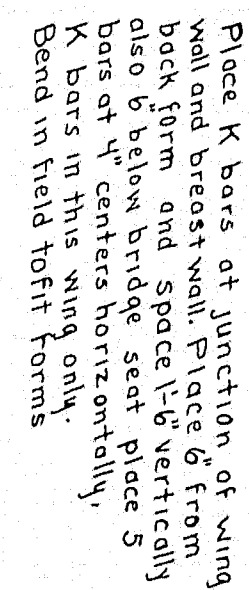 Place K bars at junction of wing
wall and breast wall. Place 6" from
back form and space 1'-6" vertically
also 6" below bridge seat place 5
bars at 4" centers horizontally,
K bars in this wing only.
Bend in field to fit forms